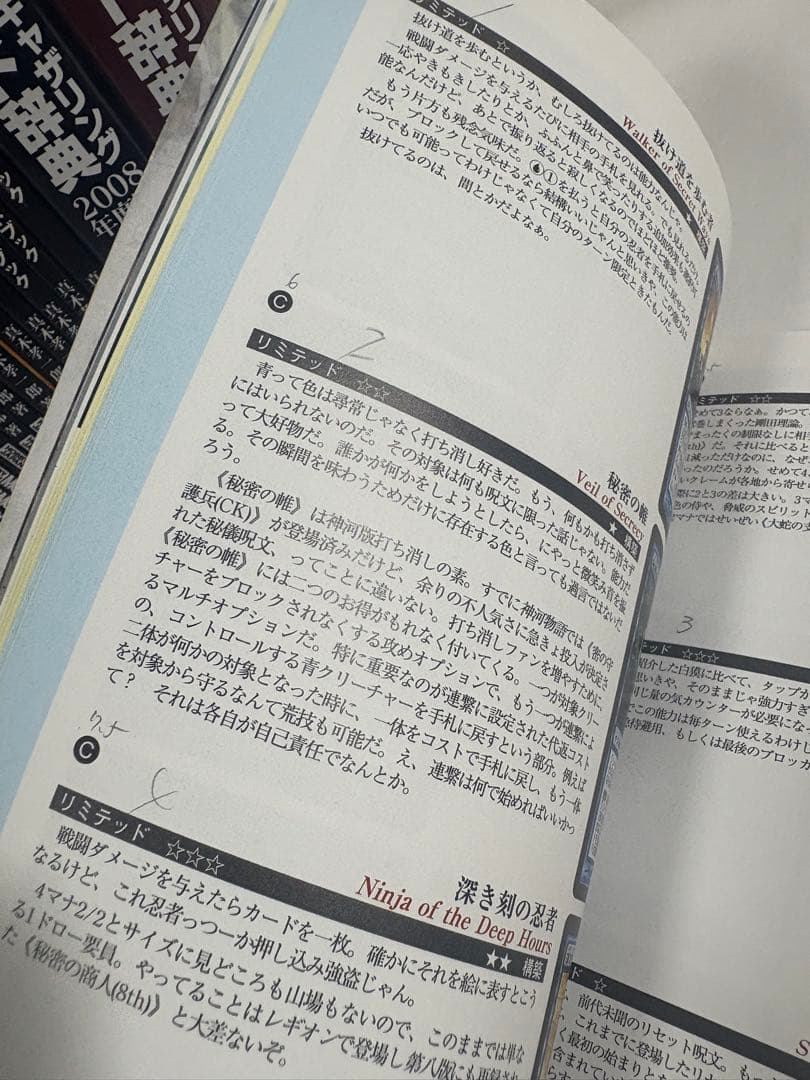 ギャザリング
辞典
2008
年度
辞典
リミテッド ☆
抜け道を歩む者
Walker of Secret Ways
抜け道を歩むというか、むしろ抜けてるのは能力なんじゃ。
戦闘ダメージを与えるたびに相手の手札を見れる。でも見れるだけ。
一応やきもきしたりとか、ふふんと鼻で笑ったりする
能なんだけど、あとで振り返ると寂しくなるのでほどほど
もう片方も残念気味だ。①を払うと自分の忍者を手札に戻せるの
だが、ブロックして戻せるなら結構いいじゃんと思いきや、この能力は
いつでも可能ってわけじゃなくて自分のターン限定ときたもんだ。
抜けてるのは、間とかだよなぁ。
6
C
2
リミテッド ☆☆
秘密の帷
Veil of Secrecy
★ 構築
青って色は尋常じゃなく打ち消し好きだ。もう、何もかも打ち消さず
にはいられないのだ。その対象は何も呪文に限った話じゃない。能力だ
って大好物だ。誰かが何かをしようとしたら、にやっと微笑み首を振
る。その瞬間を味わうためだけに存在する色と言っても過言ではないだ
ろう。
《秘密の帷》は神河版打ち消しの素。すでに神河物語では《密の守
護兵(CK)》が登場済みだけど、余りの不人気さに急きょ投入が決定さ
れた秘儀呪文、ってことに違いない。打ち消しファンを増やすために、
《秘密の帷》には二つのお得がもれなく付いてくる。一つが対象クリー
チャーをブロックされなくする攻めオプションで、もう一つが連繋によ
るマルチオプションだ。特に重要なのが連繋に設定された代返コスト
の、コントロールする青クリーチャーを手札に戻すという部分。例えば
二体が何かの対象となった時に、一体をコストで手札に戻し、もう一体
を対象から守るなんて荒技も可能だ。え、連繋は何で始めればいいかっ
て? それは各自が自己責任でなんとか。
7.5
C
リミテッド ☆☆☆
深き刻の忍者
Ninja of the Deep Hours
★★ 構築
戦闘ダメージを与えたらカードを一枚。確かにそれを絵に表すとこう
なるけど、これ忍者っつーか押し込み強盗じゃん。
4マナ2/2とサイズに見どころも山場もないので、このままでは単な
る1ドロー要員。やってることはレギオンで登場し第八版にも再録され
た《秘密の商人(8th)》と大差ないぞ。
リミテッド ☆☆
めて3ならなぁ。かつて
巻しまくった剛田理論。
まったくの制限なしに相手
だ。それに比べると
1減っただけなのに、なぜ
ったのだろうか。せめて4
いクレームが各地から寄せ
繋に2と3の差は大きい。3マ
色の侍や、脅威のスピリット
マナではせいぜい《大蛇の支
3
テッド ☆☆☆
紹介した白獏に比べて、タップが
思いきや、そのままじゃ強力すぎ
同じ量の気カウンターが必要になっ
でこの能力は毎ターン使えるわけじ
待避用、もしくは最後のブロッカ
ド ☆
前代未聞のリセット呪文。もっ
、これまでに登場したリナ
く最初の始まりとな
含まれてい